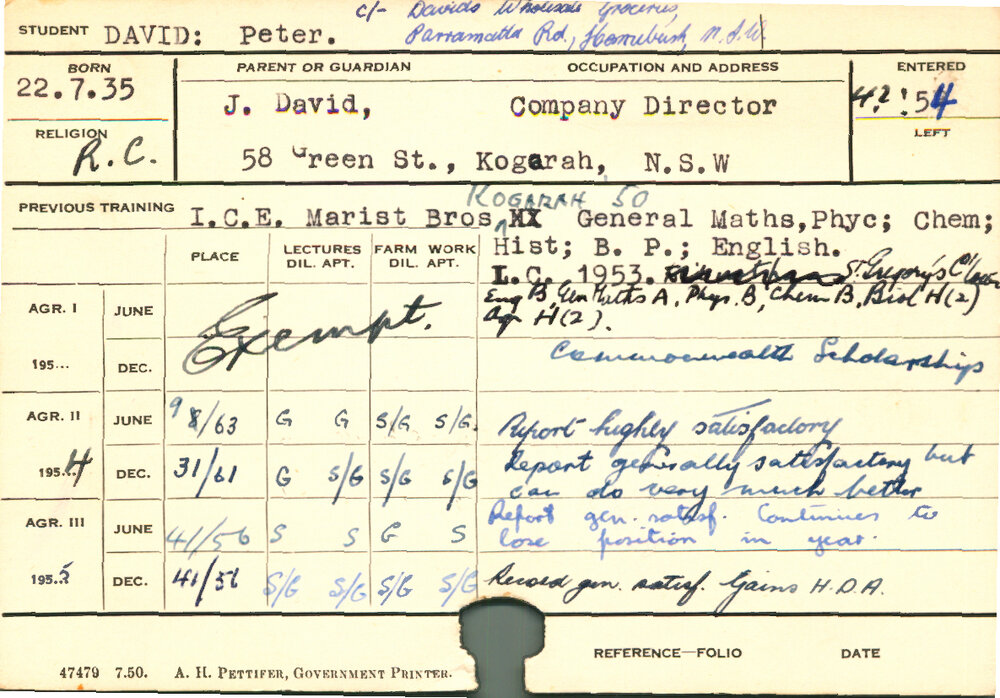 c/- Davids Wholesale Groceries,
STUDENT DAVID: Peter. Parramatta Rd., Homebush, N.S.W.
BORN PARENT OR GUARDIAN OCCUPATION AND ADDRESS ENTERED
22.7.35 J. David, Company Director 54
RELIGION LEFT
R.C. 58 Green St., Kogarah, N.S.W
KOGARAH 50
PREVIOUS TRAINING I.C.E. Marist Bros General Maths,Phyc; Chem;
Hist; B. P.; English.
PLACE LECTURES FARM WORK
DIL. APT. DIL. APT.
L.C. 1953. St. Gregory's
Eng B, Gen Maths A, Phys. B, Chem B, Biol H(2)
AGR. I JUNE Exempt. Agr H(2).
195... DEC. Commonwealth Scholarships
AGR. II JUNE 98/63 G G S/G S/G. Report highly satisfactory
195..4 DEC. 31/61 G S/G S/G S/G Report generally satisfactory but
can do very much better
AGR. III JUNE 41/56 S S G S Report gen. satisf. Continues to
lose position in year.
195.5 DEC. 41/56 S/G S/G S/G S/G Record gen. satisf. Gains H.D.A.
REFERENCE—FOLIO DATE
47479 7.50. A. H. PETTIFER, GOVERNMENT PRINTER.